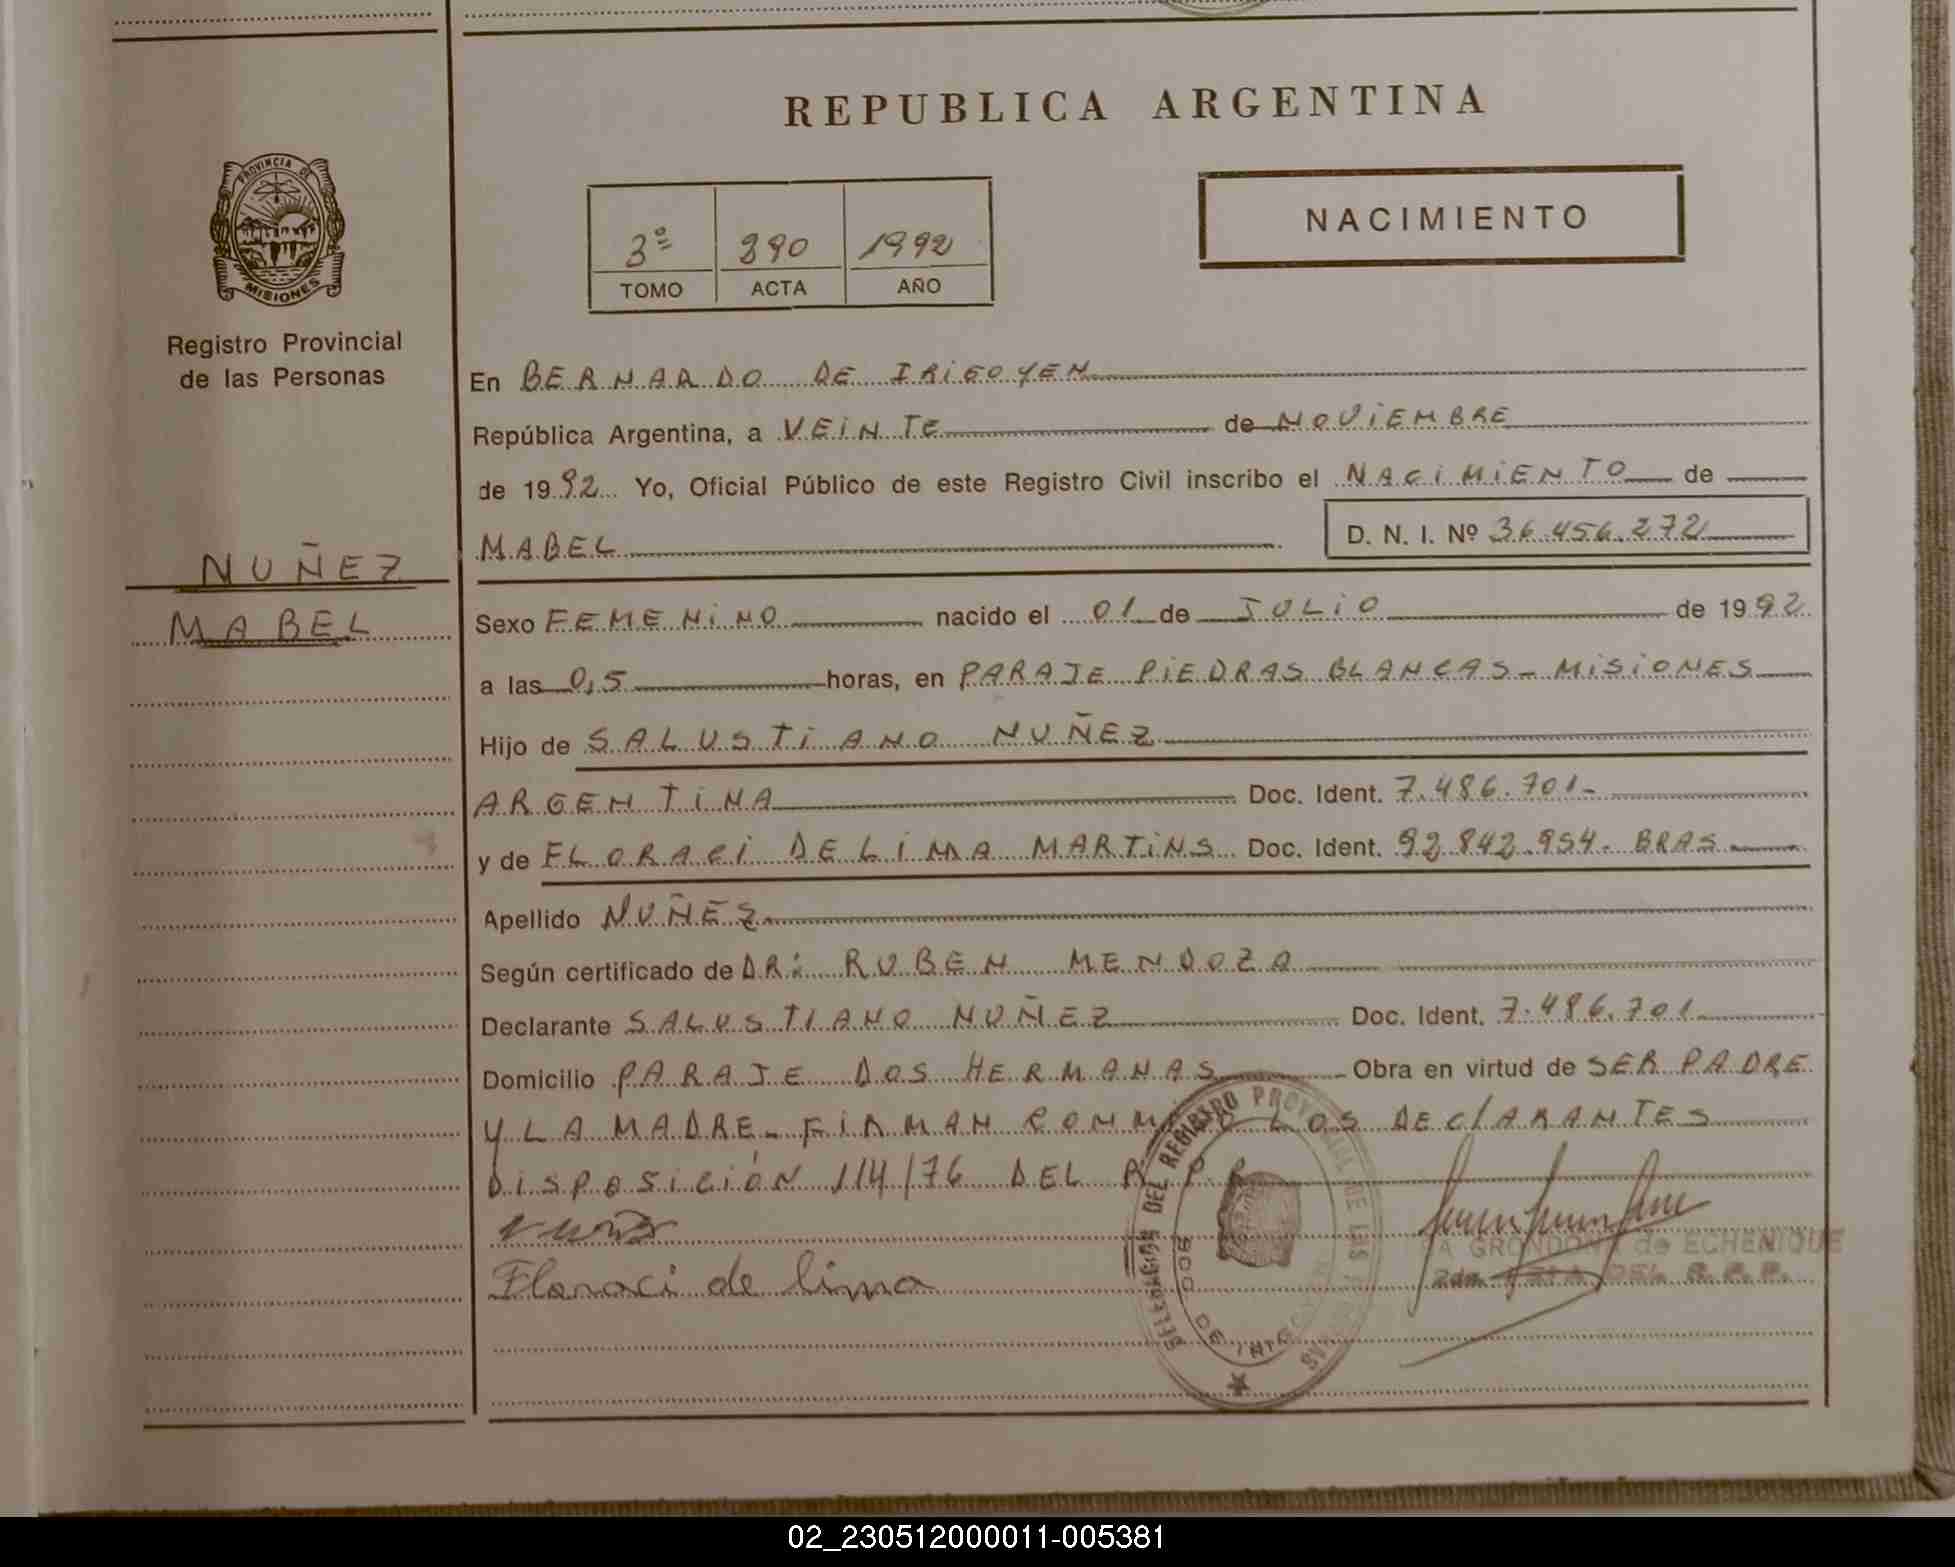 REPUBLICA ARGENTINA
PROVINCIA DE
MISIONES
Registro Provincial
de las Personas
NACIMIENTO
3º 390 1992
TOMO ACTA AÑO
En BERNARDO DE IRIGOYEN
República Argentina, a VEINTE de NOVIEMBRE
de 1992 Yo, Oficial Público de este Registro Civil inscribo el NACIMIENTO de
MABEL D. N. I. Nº 36.456.272
NUÑEZ
MABEL
Sexo FEMENINO nacido el 01 de JULIO de 1992
a las 0,5 horas, en PARAJE PIEDRAS BLANCAS - MISIONES
Hijo de SALUSTIANO NUÑEZ
ARGENTINA Doc. Ident. 7.486.701-
y de FLORACI DE LIMA MARTINS Doc. Ident. 92.842.954. BRAS
Apellido NUÑEZ
Según certificado de DR: RUBEN MENDOZA
Declarante SALUSTIANO NUÑEZ Doc. Ident. 7.486.701
Domicilio PARAJE DOS HERMANAS Obra en virtud de SER PADRE
Y LA MADRE - FIRMAN COMMIGO LOS DECLARANTES
DISPOSICIÓN 114/76 DEL R.P.R
Floraci de lima
DELEGACION DEL REGISTRO PROVINCIAL DE LAS
GRONDONA de ECHENIQUE
02_230512000011-005381